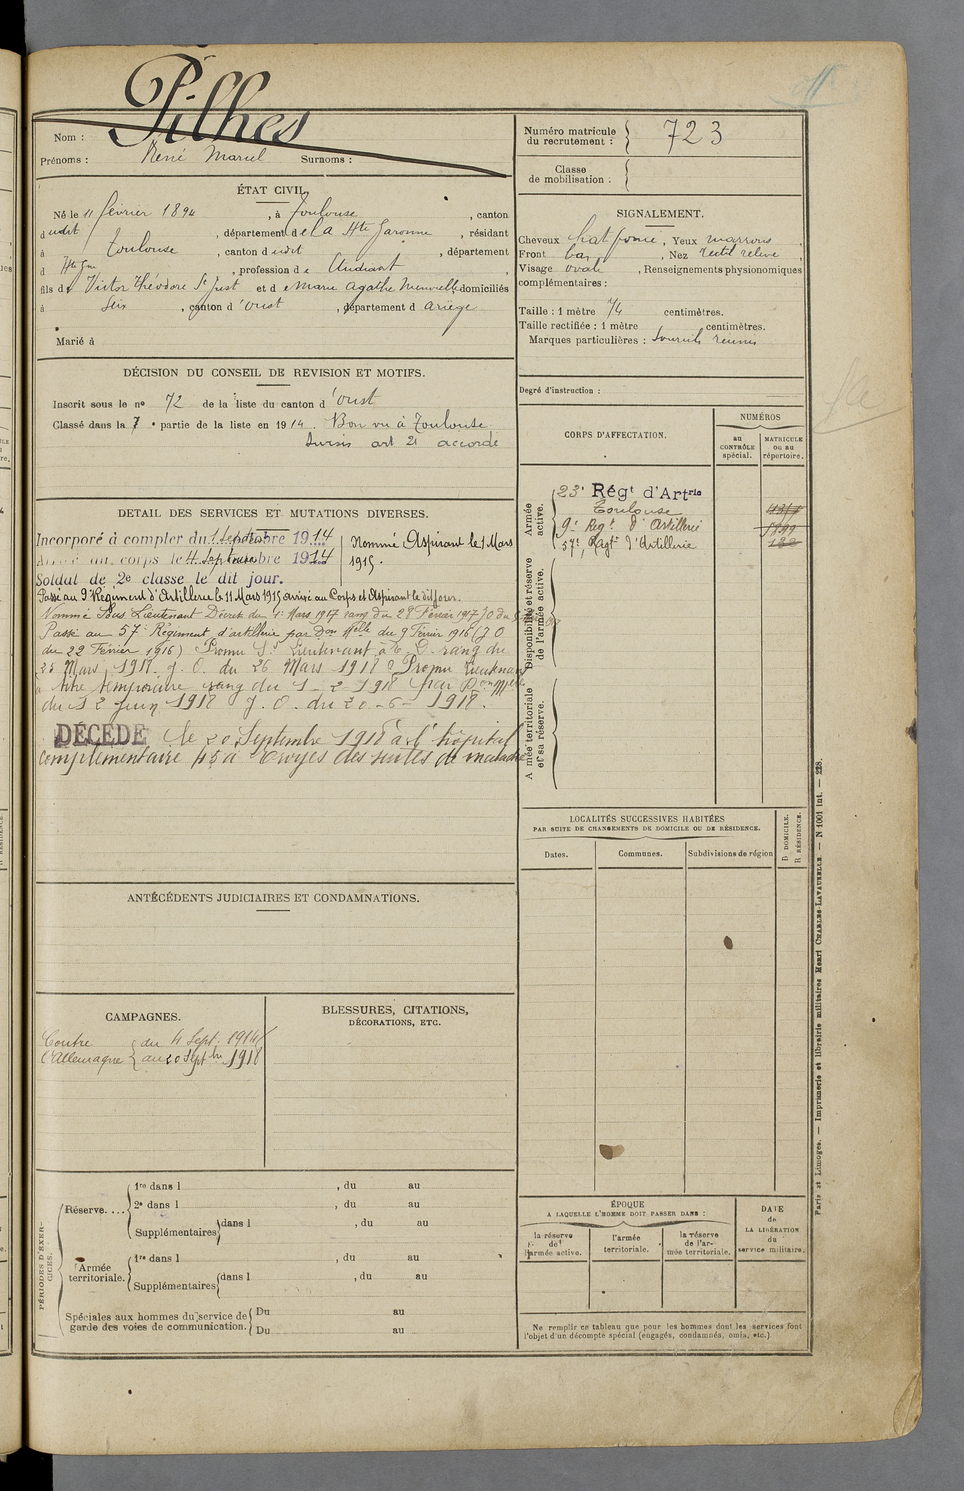 Pilhes
Nom :
Prénoms : René Marcel Surnoms :
ÉTAT CIVIL.
Né le 11 février 1894, à Toulouse, canton
dudit, département de la Hte Garonne, résidant
à Toulouse, canton dudit, département
d Hte Gne, profession de Etudiant,
fils de Victor Théodore St Just et de Marie Agathe domiciliés
à Seix, canton d'Oust, département d Ariège
Marié à
DÉCISION DU CONSEIL DE REVISION ET MOTIFS.
Inscrit sous le no 72 de la liste du canton d'Oust
Classé dans la 7e partie de la liste en 1914. Bon vu à Toulouse.
Sursis art 21 accordé
DETAIL DES SERVICES ET MUTATIONS DIVERSES.
Incorporé à compter du 1 Septembre 1914
Arrivé au corps le 4 Septembre 1914
Soldat de 2e classe le dit jour.
Nommé Aspirant le 1 Mars
1915.
Passé au 9e Régiment d'Artillerie le 11 Mars 1915 arrivé au Corps et Aspirant le dit jour.
Nommé Sous Lieutenant Décret du 1er Mars 1917 rang du 28 Février 1917 J O du
Passé au 57e Régiment d'artillerie par Don Mlle du 9 Février 1916 (J O
du 22 Février 1916) Promu St Lieutenant à T. D. rang du
25 Mars 1918. J. O. du 26 Mars 1918 Promu Lieutenant
à titre temporaire rang du 1-2-1918 par Don Mlle
du 12 Juin 1918 J. O. du 20-6-1918.
DÉCÉDÉ le 20 Septembre 1918 à l'hôpital
complémentaire 45 à Troyes des suites de maladie
ANTÉCÉDENTS JUDICIAIRES ET CONDAMNATIONS.
CAMPAGNES.
Contre l'Allemagne { du 4 Sept. 1914
au 20 Septbre 1918
BLESSURES, CITATIONS,
DÉCORATIONS, ETC.
PÉRIODES D'EXERCICES.
Réserve....
1re dans l , du au
2e dans l , du au
Supplémentaires dans l , du au
Armée territoriale.
1re dans l , du au
Supplémentaires dans l , du au
Spéciales aux hommes du service de garde des voies de communication.
Du au
Du au
Numéro matricule du recrutement : 723
Classe de mobilisation :
SIGNALEMENT.
Cheveux chat foncé, Yeux marrons,
Front bas, Nez rectil relevé,
Visage ovale, Renseignements physionomiques
complémentaires :
Taille : 1 mètre 74 centimètres.
Taille rectifiée : 1 mètre centimètres.
Marques particulières : Sourcils réunis
Degré d'instruction :
CORPS D'AFFECTATION.
NUMÉROS
au CONTRÔLE spécial.
MATRICULE ou au répertoire.
Armée active.
23e Régt d'Artrie
Toulouse
9e Regt d'Artillerie
57e Regt d'Artillerie
Disponibilité et réserve de l'armée active.
Armée territoriale et sa réserve.
LOCALITÉS SUCCESSIVES HABITÉES
PAR SUITE DE CHANGEMENTS DE DOMICILE OU DE RÉSIDENCE.
Dates.
Communes.
Subdivisions de région
D DOMICILE.
R RÉSIDENCE.
ÉPOQUE
A LAQUELLE L'HOMME DOIT PASSER DANS :
la réserve de l'armée active.
l'armée territoriale.
la réserve de l'armée territoriale.
DATE de LA LIBÉRATION du service militaire.
Ne remplir ce tableau que pour les hommes dont les services font
l'objet d'un décompte spécial (engagés, condamnés, omis, etc.)
Paris et Limoges. — Imprimerie et librairie militaires Henri CHARLES-LAVAUZELLE. — N 1001 int. — 228.